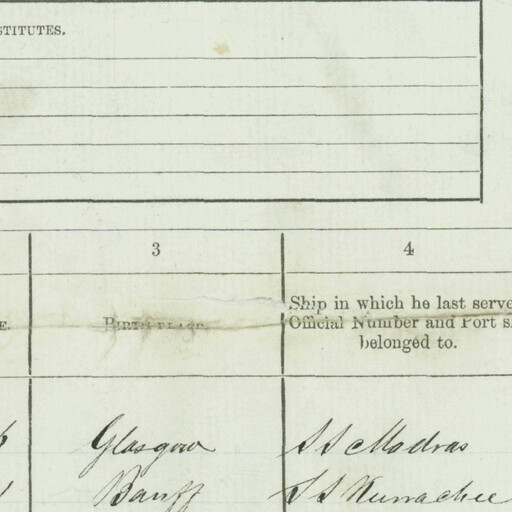 STITUTES.
3 4
E. BIRTH PLACE. Ship in which he last serve
Official Number and Port s
belonged to.
Glasgow SS Madras
Banff SS Kurrachee